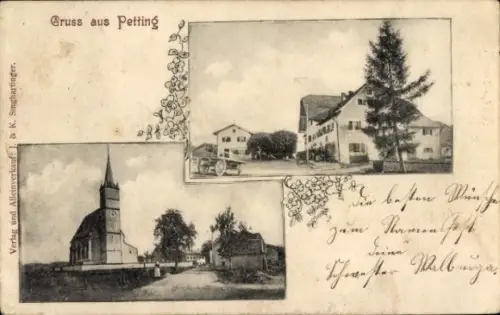 Gruss aus Petting
Verlag und Alleinverkauf J. & K. Singhartinger.
Die besten Wünsche
zum Namensfest
Deine
Schwester Walburga